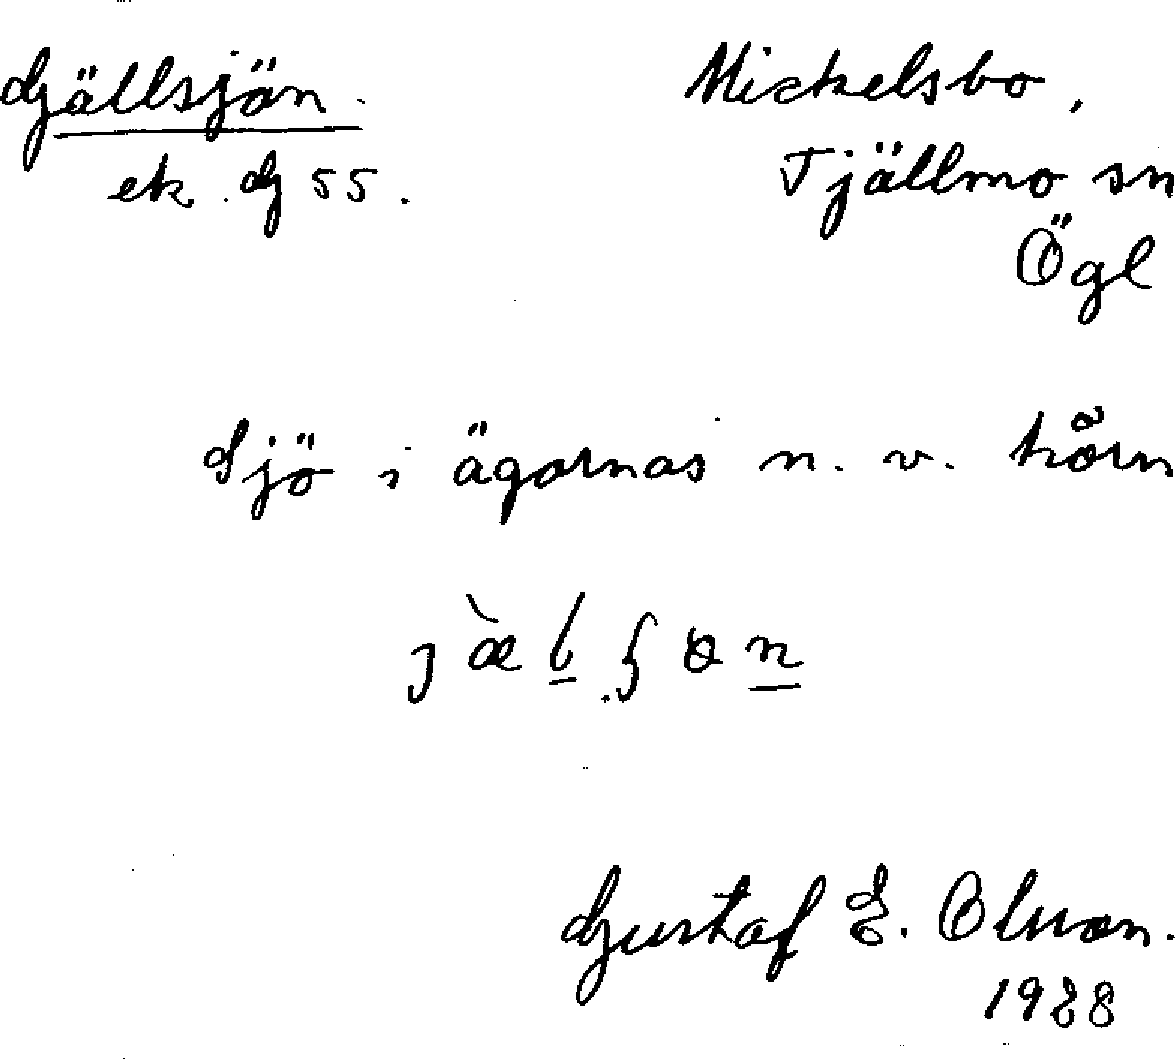 Gjällsjön. Mickelsbo,
ek. Gj 55. Tjällmo sn
Ögl
Sjö i ägornas n. v. hörn
Gustaf E. Olsson.
1928